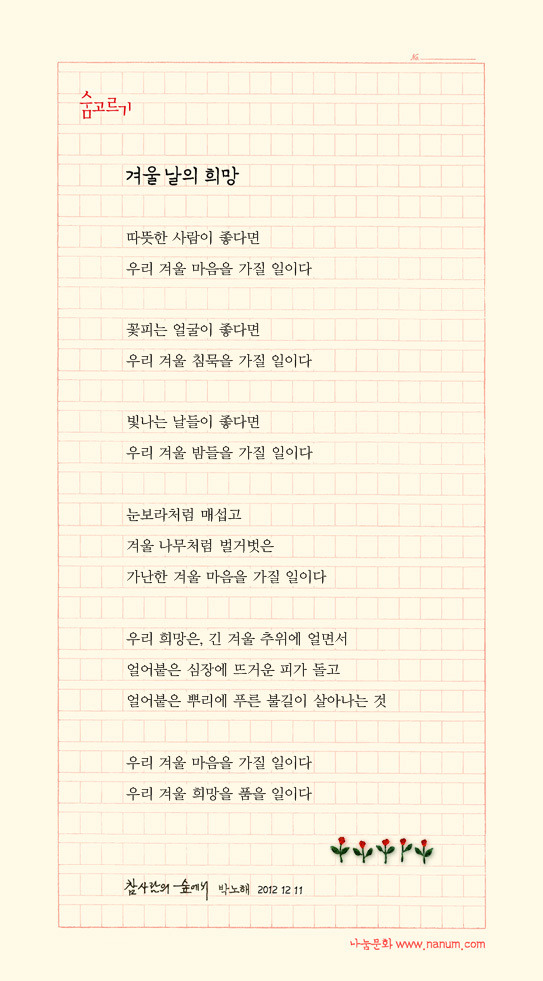 №
숨고르기
겨울 날의 희망
따뜻한 사람이 좋다면
우리 겨울 마음을 가질 일이다
꽃피는 얼굴이 좋다면
우리 겨울 침묵을 가질 일이다
빛나는 날들이 좋다면
우리 겨울 밤들을 가질 일이다
눈보라처럼 매섭고
겨울 나무처럼 벌거벗은
가난한 겨울 마음을 가질 일이다
우리 희망은, 긴 겨울 추위에 얼면서
얼어붙은 심장에 뜨거운 피가 돌고
얼어붙은 뿌리에 푸른 불길이 살아나는 것
우리 겨울 마음을 가질 일이다
우리 겨울 희망을 품을 일이다
참사람의 숲에서 박노해 2012 12 11
나눔문화 www.nanum.com